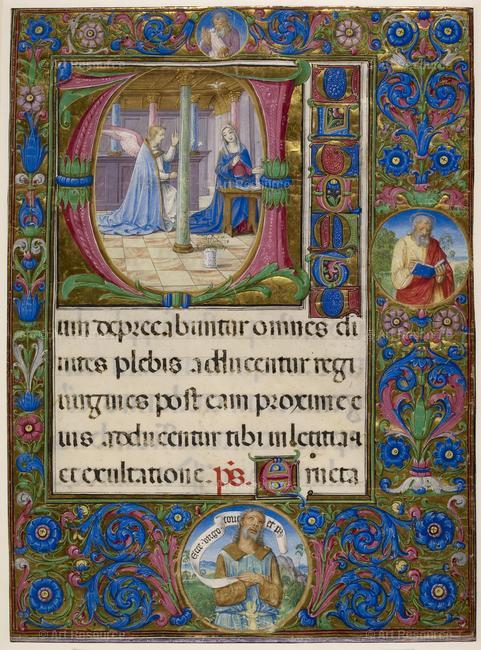 V
ULTUMTU
um deprecabuntur omnes di
uites plebis adducentur regi
uirgines post eam proxime e
ius adducentur tibi in letitia
et exultatione. ps. Eructa
Ecce uirgo conc et p
© Art Resource